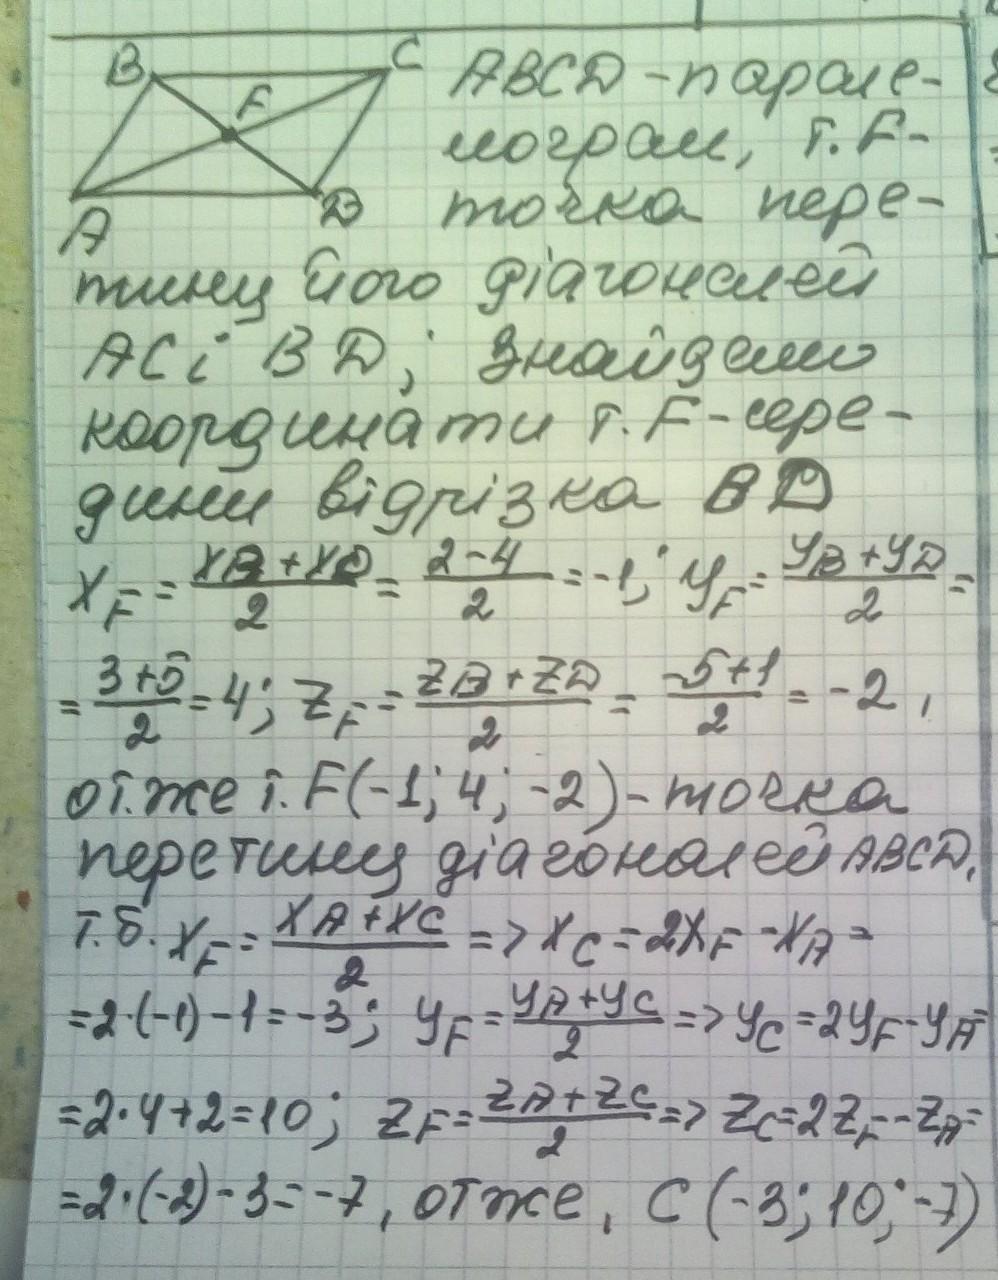 B C ABCD - парале-
F лограм, т. F -
A D точка пере-
тину його діагоналей
AC і BD; знайдемо
координати т. F - сере-
дини відрізка BD
x_F = (x_B + x_D)/2 = (2-4)/2 = -1; y_F = (y_B + y_D)/2 =
= (3+5)/2 = 4; z_F = (z_B + z_D)/2 = (-5+1)/2 = -2,
отже т. F(-1; 4; -2) - точка
перетину діагоналей ABCD,
т.б. x_F = (x_A + x_C)/2 => x_C = 2x_F - x_A =
= 2·(-1) - 1 = -3; y_F = (y_A + y_C)/2 => y_C = 2y_F - y_A =
= 2·4+2 = 10; z_F = (z_A + z_C)/2 => z_C = 2z_F - z_A =
= 2·(-2) - 3 = -7, отже, C (-3; 10; -7)